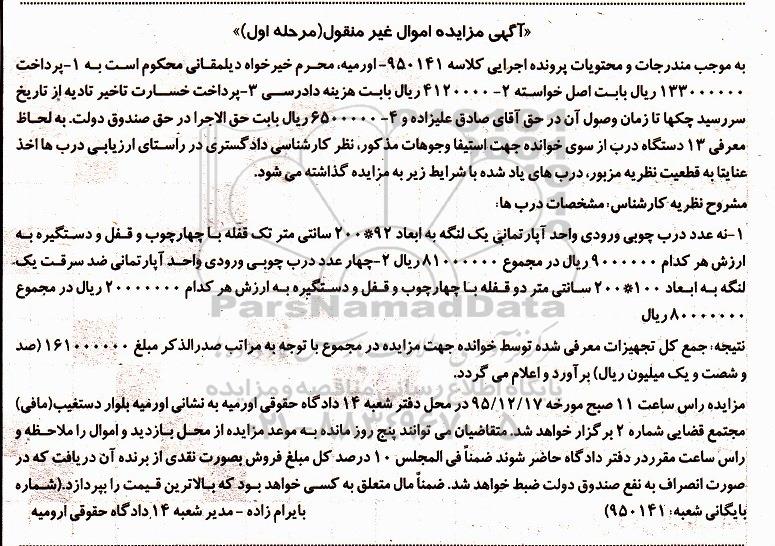 «آگهی مزایده اموال غیر منقول(مرحله اول)»
به موجب مندرجات و محتویات پرونده اجرایی کلاسه ۹۵۰۱۴۱- اورمیه، محرم خیرخواه دیلمقانی محکوم است به ۱-پرداخت
۱۳۳۰۰۰۰۰۰ ریال بابت اصل خواسته ۲- ۴۱۲۰۰۰۰ ریال بابت هزینه دادرسی ۳-پرداخت خسارت تاخیر تادیه از تاریخ
سررسید چکها تا زمان وصول آن در حق آقای صادق علیزاده و ۴- ۶۵۰۰۰۰۰ ریال بابت حق الاجرا در حق صندوق دولت. به لحاظ
معرفی ۱۳ دستگاه درب از سوی خوانده جهت استیفا وجوهات مذکور، نظر کارشناسی دادگستری در راستای ارزیابی درب ها اخذ
عنایتا به قطعیت نظریه مزبور، درب های یاد شده با شرایط زیر به مزایده گذاشته می شود.
مشروح نظریه کارشناس: مشخصات درب ها:
۱-نه عدد درب چوبی ورودی واحد آپارتمانی یک لنگه به ابعاد ۹۲*۲۰۰ سانتی متر تک قفله با چهارچوب و قفل و دستگیره به
ارزش هر کدام ۹۰۰۰۰۰۰ ریال در مجموع ۸۱۰۰۰۰۰۰ ریال ۲-چهار عدد درب چوبی ورودی واحد آپارتمانی ضد سرقت یک
لنگه به ابعاد ۱۰۰*۲۰۰ سانتی متر دو قفله با چهارچوب و قفل و دستگیره به ارزش هر کدام ۲۰۰۰۰۰۰۰ ریال در مجموع
۸۰۰۰۰۰۰۰ ریال
نتیجه: جمع کل تجهیزات معرفی شده توسط خوانده جهت مزایده در مجموع با توجه به مراتب صدرالذکر مبلغ ۱۶۱۰۰۰۰۰۰ (صد
و شصت و یک میلیون ریال) برآورد و اعلام می گردد.
مزایده راس ساعت ۱۱ صبح مورخه ۹۵/۱۲/۱۷ در محل دفتر شعبه ۱۴ دادگاه حقوقی اورمیه به نشانی اورمیه بلوار دستغیب(مافی)
مجتمع قضایی شماره ۲ برگزار خواهد شد. متقاضیان می توانند پنج روز مانده به موعد مزایده از محل بازدید و اموال را ملاحظه و
راس ساعت مقرردر دفتر دادگاه حاضر شوند ضمناً فی المجلس ۱۰ درصد کل مبلغ فروش بصورت نقدی از برنده آن دریافت که در
صورت انصراف به نفع صندوق دولت ضبط خواهد شد. ضمناً مال متعلق به کسی خواهد بود که بالاترین قیمت را بپردازد.(شماره
بایگانی شعبه: ۹۵۰۱۴۱) بایرام زاده - مدیر شعبه ۱۴ دادگاه حقوقی ارومیه
ParsNamadData
پایگاه اطلاع رسانی مناقصه و مزایده